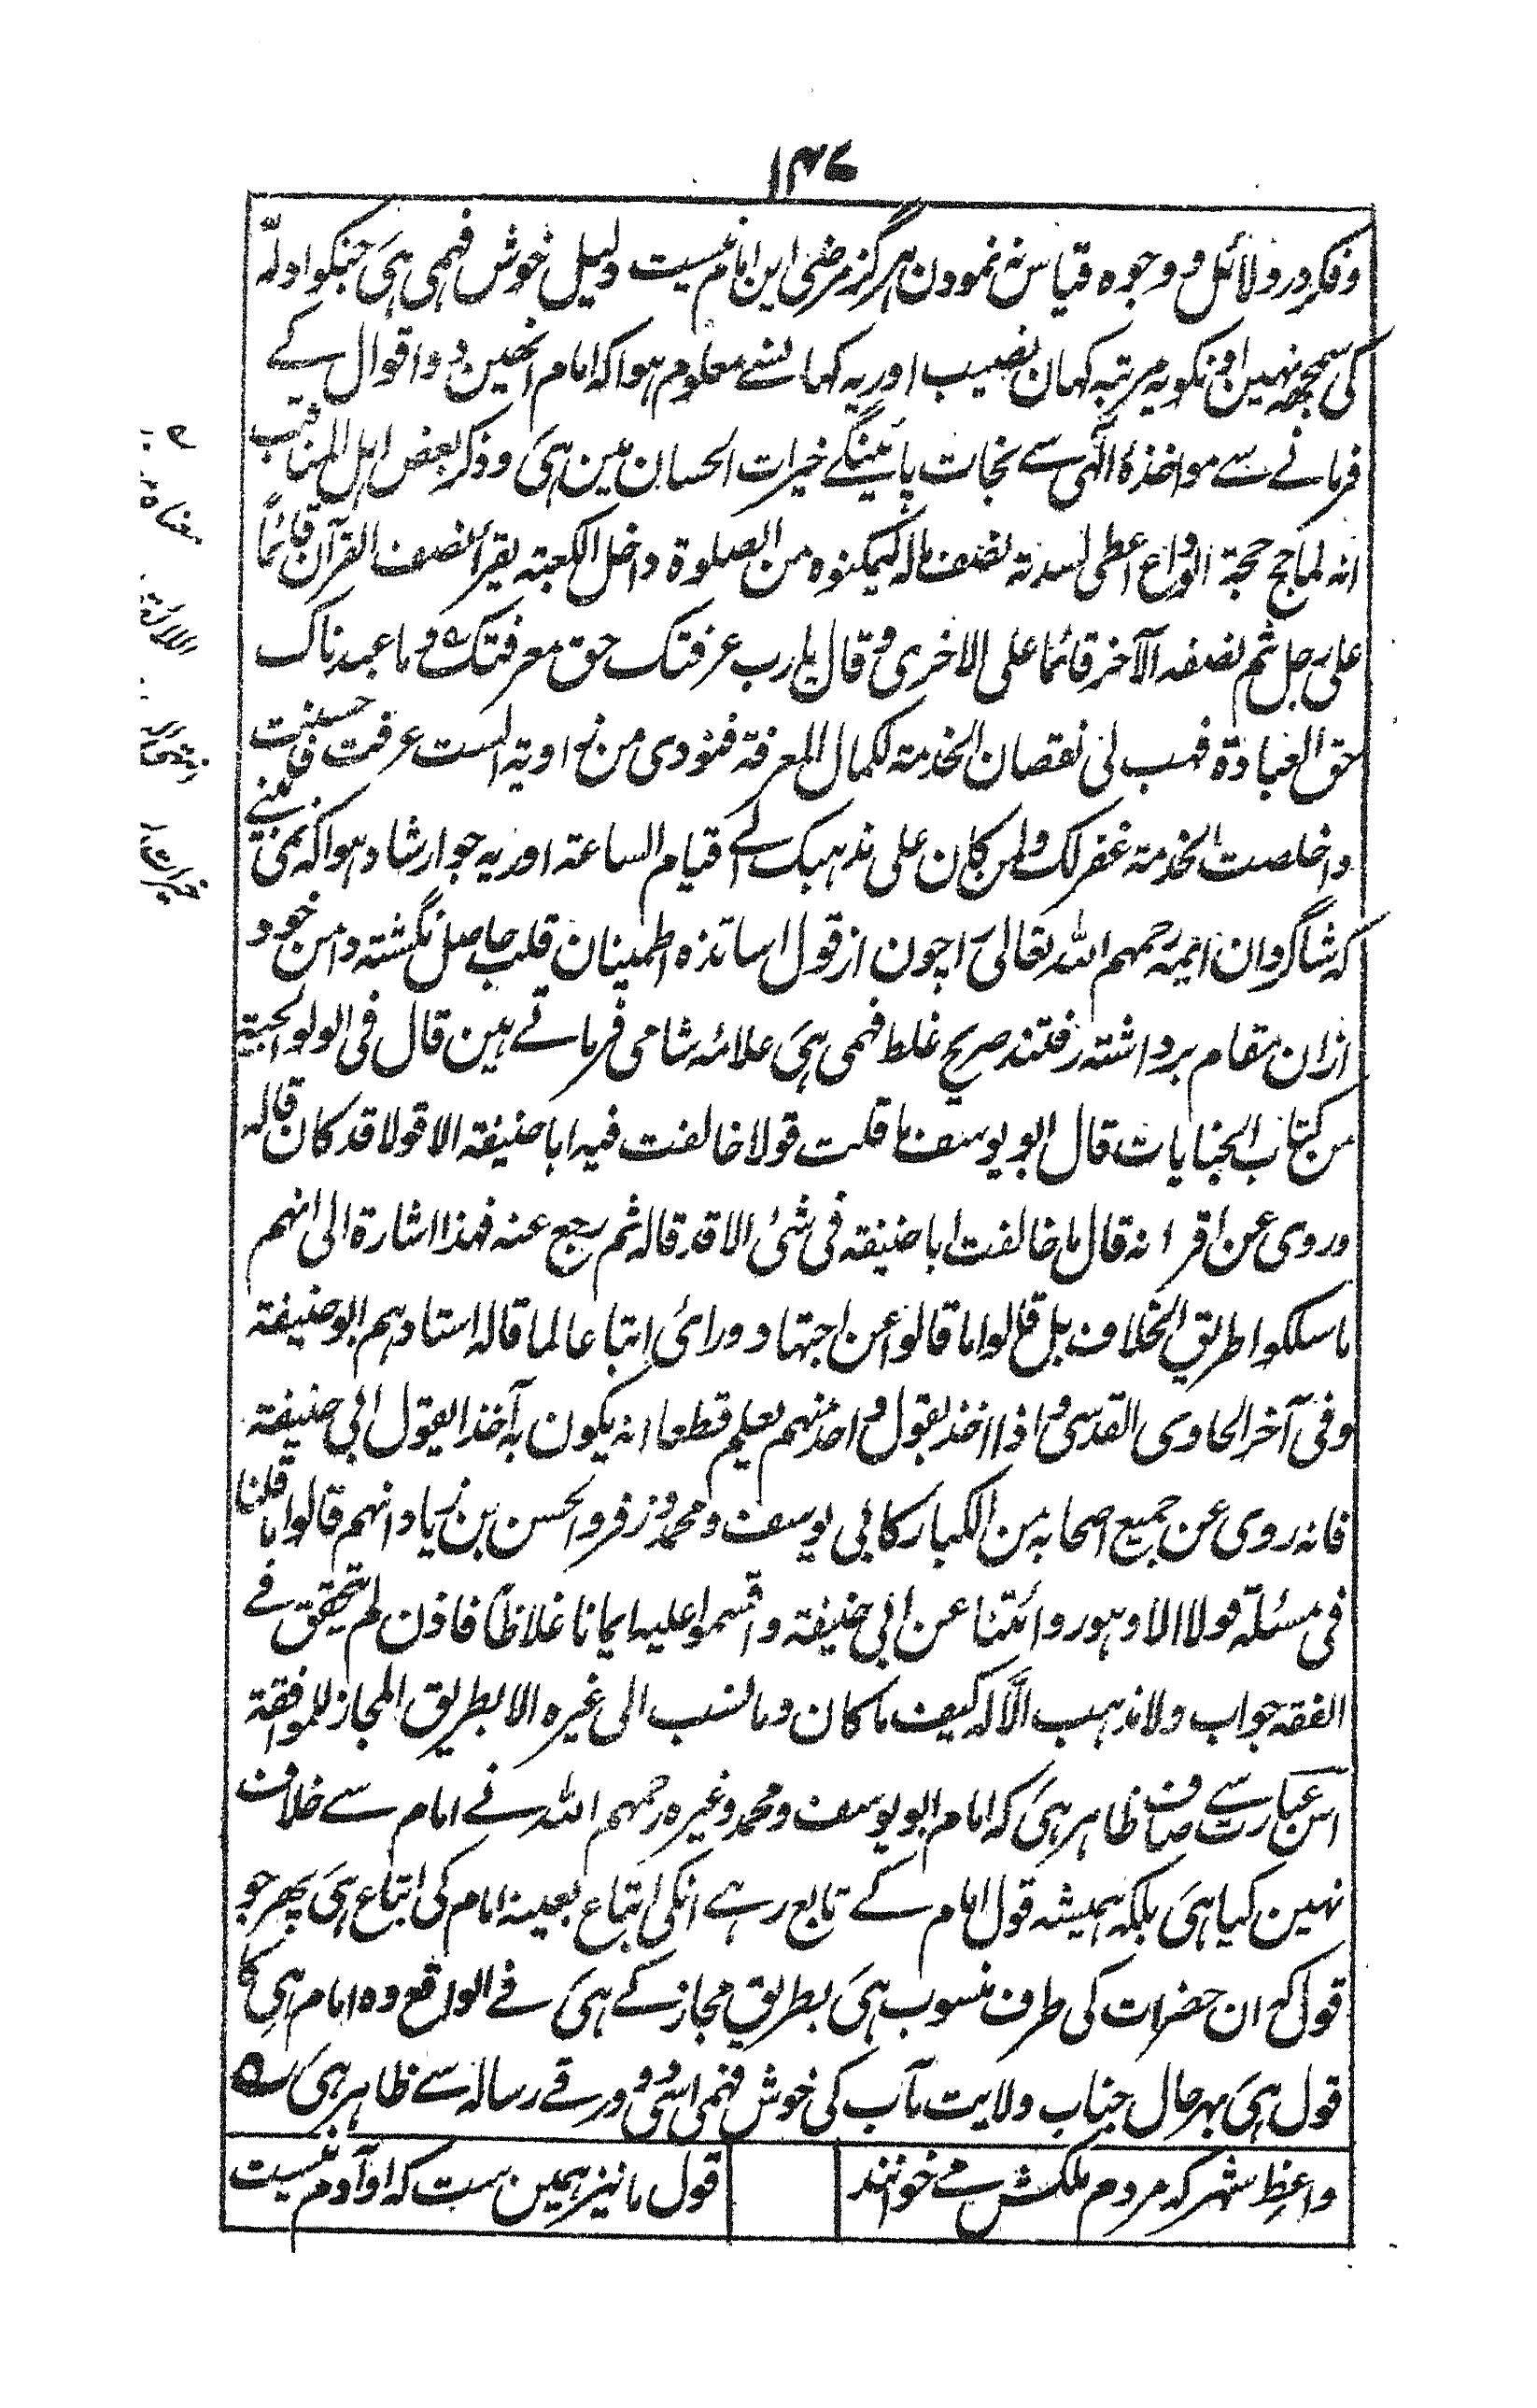 ۱۴۷
و فکر در دلائل و وجوه قیاس نه نمودن هرگز مرضی این امام نیست دلیل خوش فہمی ہی جنکو ادلّہ
کی سمجھ نہین اونکو یہ مرتبہ کہان نصیب اور یہ کہا نسے معلوم ہوا کہ امام انھین دو اقوال کے
فرمانے سے مواخذۂ الٓہی سے نجات پائینگے خیرات الحسان مین ہی وذکر بعض اہل المناقب
انہ لما حج حجة الوداع اعطی لسدنة نصف مالہ لیمکنوہ من الصلوة داخل الکعبتہ یقرأ نصف القرآن قائمًا
علی رجل ثم نصفہ الآخر قائما علی الاخری و قال یا رب عرفتک حق معرفتک و ما عبدناک
حق العبادة فہب لی نقصان الخدمتہ لکمال المعرفۃ فنودی من زاویۃ البیت عرفت فاحسنت
واخلصت الخدمتہ غفر لک ولمن کان علی مذہبک الے قیام الساعة اور یہ جو ارشاد ہوا کہ
کہ شاگردان ایمہ رحمہم اللہ تعالی را چون از قول اساتذہ اطمینان قلب حاصل نگشتہ دامن خود
ازان مقام برداشتہ رفتند صریح غلط فہمی ہی علامہ شامی فرماتے ہین قال فی الولوالجیتہ
من کتاب الجنایات قال ابو یوسف ما قلت قولا خالفت فیہ ابا حنیفۃ الا قولا قد کان قالہ
وروی عن زفر انہ قال ما خالفت ابا حنیفۃ فی شئ الا قد قالہ ثم رجع عنہ فہذا اشارة الی انہم
ما سلکوا طریق الخلاف بل قالوا ما قالوا عن اجتہاد و رائ اتباعا لما قالہ استادہم ابو حنیفۃ
وفی آخر الحاوی القدسی و اذا اخذ بقول واحد منہم یعلم قطعا انہ یکون بہ آخذا بقول ابی حنیفۃ
فانہ روی عن جمیع اصحابہ من الکبار کابی یوسف و محمد و زفر والحسن بن زیاد انہم قالوا ما قلنا
فی مسئلۃ قولا الا و ہو روائتنا عن ابی حنیفۃ واقسموا علیہ ایمانا غلاظاً فاذن لم یتحقق فے
الفقہ جواب ولا مذہب الّا لہ کیف ما کان وما نسب الی غیرہ الا بطریق المجاز للموافقۃ
اس عبارت سے صاف ظاہر ہی کہ امام ابو یوسف و محمد وغیرہ رحمہم اللہ نے امام سے خلاف
نہین کیا ہی بلکہ ہمیشہ قول امام کے تابع رہے انکی اتباع بعینہ امام کی اتباع ہی پھر جو
قول کہ ان حضرات کی طرف منسوب ہی بطریق مجاز کے ہی فے الواقع وہ امام ہی کا
قول ہی بہر حال جناب ولایت مآب کی خوش فہمی اسی دو ورقے رسالہ سے ظاہر ہی
واعظ شہر کہ مردم ملکش مے خوانند
قول ما نیز ہمین ست کہ او آدم نیست